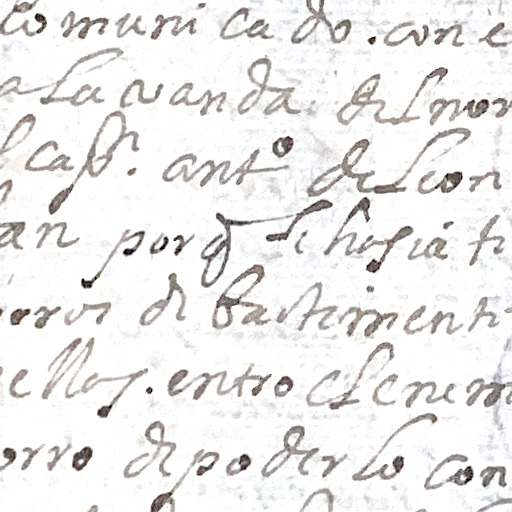 comunicado. con e
a la vanda del nor
l capn. anto de leon
an porq le hasia ti
oros de bastimenti
ellos. entro el enem
orro de poderlo con